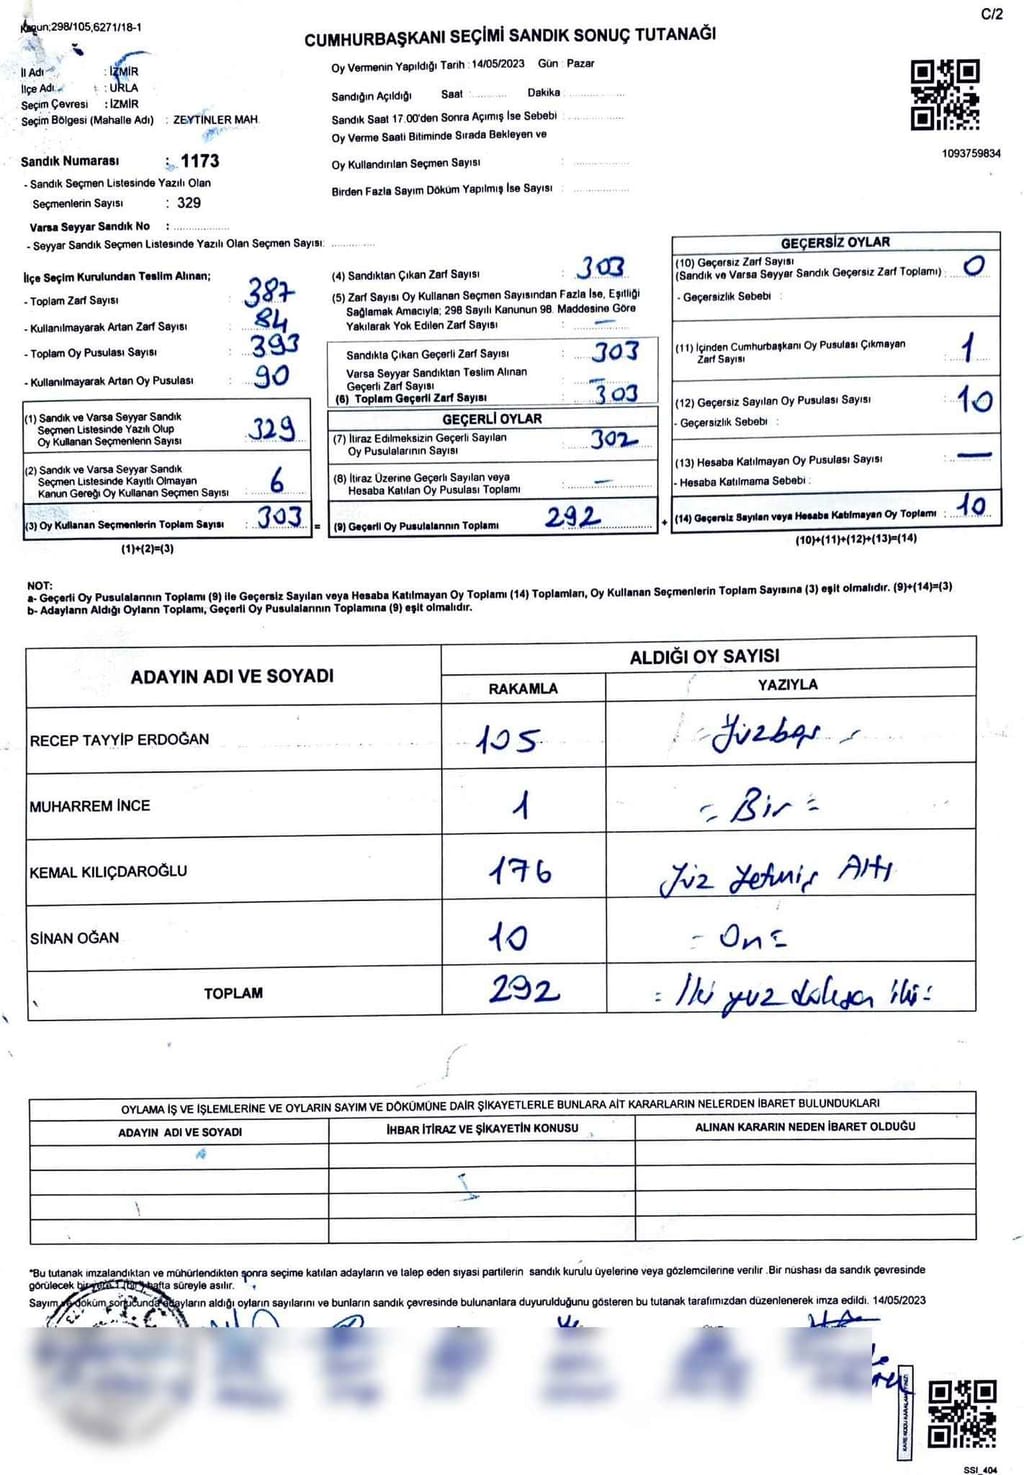 C/2
Kanun;298/105,6271/18-1
CUMHURBAŞKANI SEÇİMİ SANDIK SONUÇ TUTANAĞI
İl Adı : İZMİR
İlçe Adı : URLA
Seçim Çevresi : İZMİR
Seçim Bölgesi (Mahalle Adı) : ZEYTİNLER MAH.
Sandık Numarası : 1173
- Sandık Seçmen Listesinde Yazılı Olan
Seçmenlerin Sayısı : 329
Varsa Seyyar Sandık No :
- Seyyar Sandık Seçmen Listesinde Yazılı Olan Seçmen Sayısı:
Oy Vermenin Yapıldığı Tarih : 14/05/2023 Gün : Pazar
Sandığın Açıldığı Saat : Dakika :
Sandık Saat 17.00'den Sonra Açımış İse Sebebi :
Oy Verme Saati Bitiminde Sırada Bekleyen ve
Oy Kullandırılan Seçmen Sayısı :
Birden Fazla Sayım Döküm Yapılmış İse Sayısı :
1093759834
İlçe Seçim Kurulundan Teslim Alınan;
- Toplam Zarf Sayısı : 387
- Kullanılmayarak Artan Zarf Sayısı : 84
- Toplam Oy Pusulası Sayısı : 393
- Kullanılmayarak Artan Oy Pusulası : 90
(1) Sandık ve Varsa Seyyar Sandık
Seçmen Listesinde Yazılı Olup
Oy Kullanan Seçmenlerin Sayısı : 329
(2) Sandık ve Varsa Seyyar Sandık
Seçmen Listesinde Kayıtlı Olmayan
Kanun Gereği Oy Kullanan Seçmen Sayısı : 6
(3) Oy Kullanan Seçmenlerin Toplam Sayısı : 303 =
(1)+(2)=(3)
(4) Sandıktan Çıkan Zarf Sayısı : 303
(5) Zarf Sayısı Oy Kullanan Seçmen Sayısından Fazla İse, Eşitliği
Sağlamak Amacıyla; 298 Sayılı Kanunun 98. Maddesine Göre
Yakılarak Yok Edilen Zarf Sayısı : —
Sandıkta Çıkan Geçerli Zarf Sayısı : 303
Varsa Seyyar Sandıktan Teslim Alınan
Geçerli Zarf Sayısı : —
(6) Toplam Geçerli Zarf Sayısı : 303
GEÇERLİ OYLAR
(7) İtiraz Edilmeksizin Geçerli Sayılan
Oy Pusulalarının Sayısı : 302
(8) İtiraz Üzerine Geçerli Sayılan veya
Hesaba Katılan Oy Pusulası Toplamı : —
(9) Geçerli Oy Pusulalarının Toplamı 292 +
GEÇERSİZ OYLAR
(10) Geçersiz Zarf Sayısı
(Sandık ve Varsa Seyyar Sandık Geçersiz Zarf Toplamı) : 0
- Geçersizlik Sebebi :
(11) İçinden Cumhurbaşkanı Oy Pusulası Çıkmayan
Zarf Sayısı : 1
(12) Geçersiz Sayılan Oy Pusulası Sayısı : 10
- Geçersizlik Sebebi :
(13) Hesaba Katılmayan Oy Pusulası Sayısı : —
- Hesaba Katılmama Sebebi :
(14) Geçersiz Sayılan veya Hesaba Katılmayan Oy Toplamı : 10
(10)+(11)+(12)+(13)=(14)
NOT:
a- Geçerli Oy Pusulalarının Toplamı (9) ile Geçersiz Sayılan veya Hesaba Katılmayan Oy Toplamı (14) Toplamları, Oy Kullanan Seçmenlerin Toplam Sayısına (3) eşit olmalıdır. (9)+(14)=(3)
b- Adayların Aldığı Oyların Toplamı, Geçerli Oy Pusulalarının Toplamına (9) eşit olmalıdır.
ADAYIN ADI VE SOYADI
ALDIĞI OY SAYISI
RAKAMLA YAZIYLA
RECEP TAYYİP ERDOĞAN 105 Yüzbeş
MUHARREM İNCE 1 = Bir =
KEMAL KILIÇDAROĞLU 176 Yüz Yetmiş Altı
SİNAN OĞAN 10 = On =
TOPLAM 292 = İki yüz doksan iki =
OYLAMA İŞ VE İŞLEMLERİNE VE OYLARIN SAYIM VE DÖKÜMÜNE DAİR ŞİKAYETLERLE BUNLARA AİT KARARLARIN NELERDEN İBARET BULUNDUKLARI
ADAYIN ADI VE SOYADI İHBAR İTİRAZ VE ŞİKAYETİN KONUSU ALINAN KARARIN NEDEN İBARET OLDUĞU
*Bu tutanak imzalandıktan ve mühürlendikten sonra seçime katılan adayların ve talep eden siyasi partilerin sandık kurulu üyelerine veya gözlemcilerine verilir .Bir nüshası da sandık çevresinde
görülecek bir yere 1 (bir) hafta süreyle asılır.
Sayım ve döküm sonucunda adayların aldığı oyların sayılarını ve bunların sandık çevresinde bulunanlara duyurulduğunu gösteren bu tutanak tarafımızdan düzenlenerek imza edildi. 14/05/2023
SSI_404